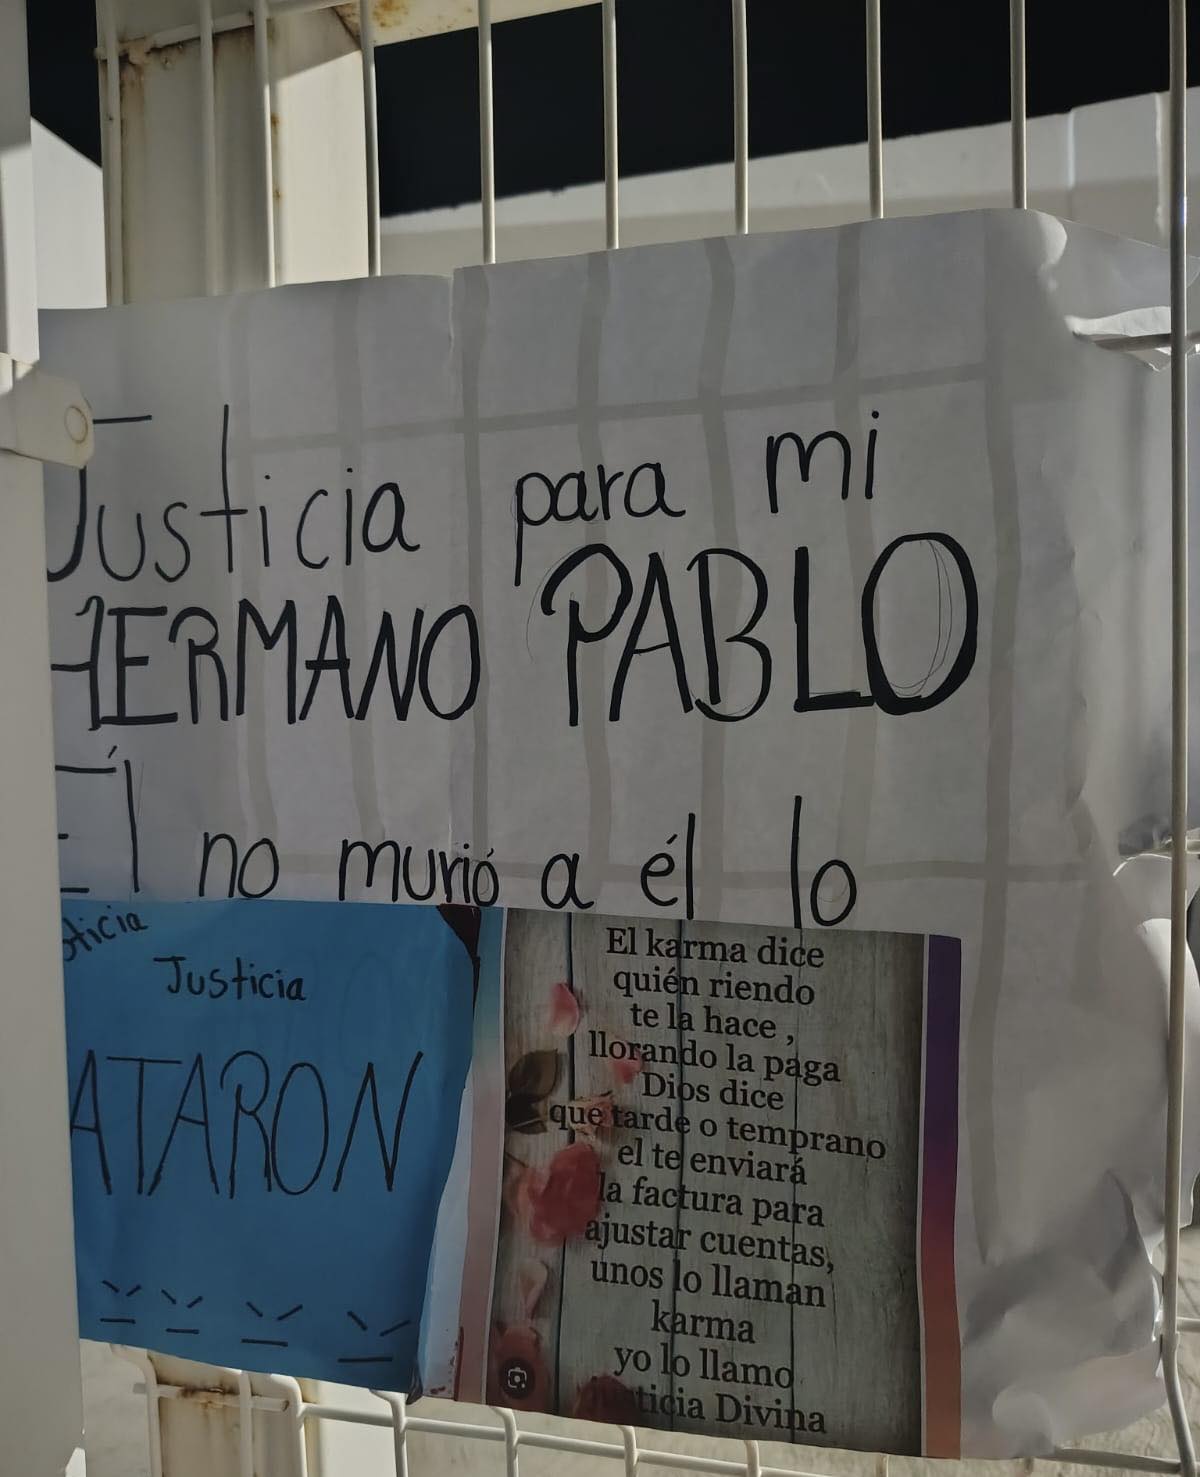 Justicia para mi
HERMANO PABLO
Él no murió a él lo
sticia
Justicia
ATARON
El karma dice
quién riendo
te la hace ,
llorando la paga
Dios dice
que tarde o temprano
el te enviará
la factura para
ajustar cuentas,
unos lo llaman
karma
yo lo llamo
Justicia Divina